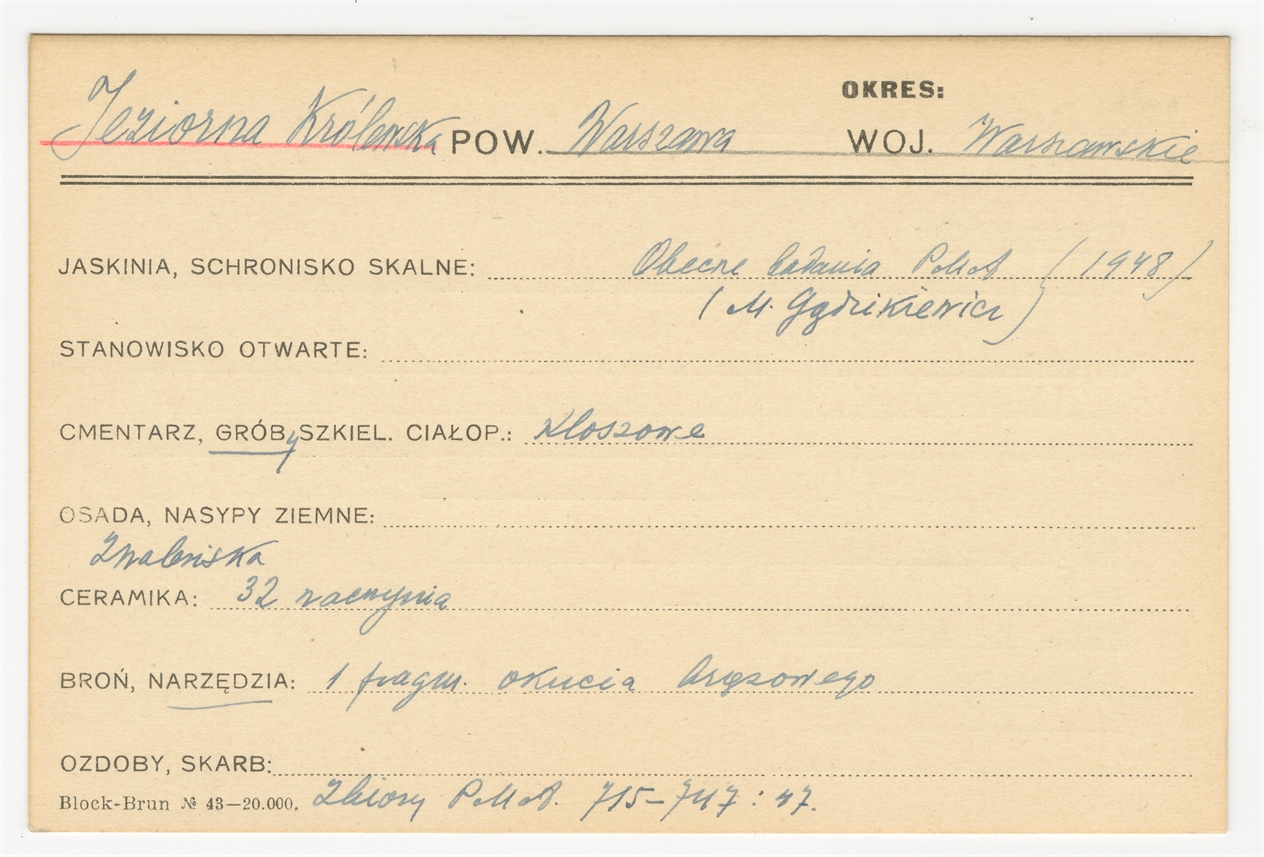 OKRES:
Jeziorna Królewska POW. Warszawa WOJ. Warszawskie
JASKINIA, SCHRONISKO SKALNE: Obecne badania PMA (1948)
(M. Gądzikiewicz)
STANOWISKO OTWARTE:
CMENTARZ, GRÓBy SZKIEL. CIAŁOP.: Kloszowe
OSADA, NASYPY ZIEMNE:
Znaleziska
CERAMIKA: 32 naczynia
BROŃ, NARZĘDZIA: 1 fragm. okucia brązowego
OZDOBY, SKARB:
Block-Brun № 43—20.000. Zbiory PMA. 715-747:47.